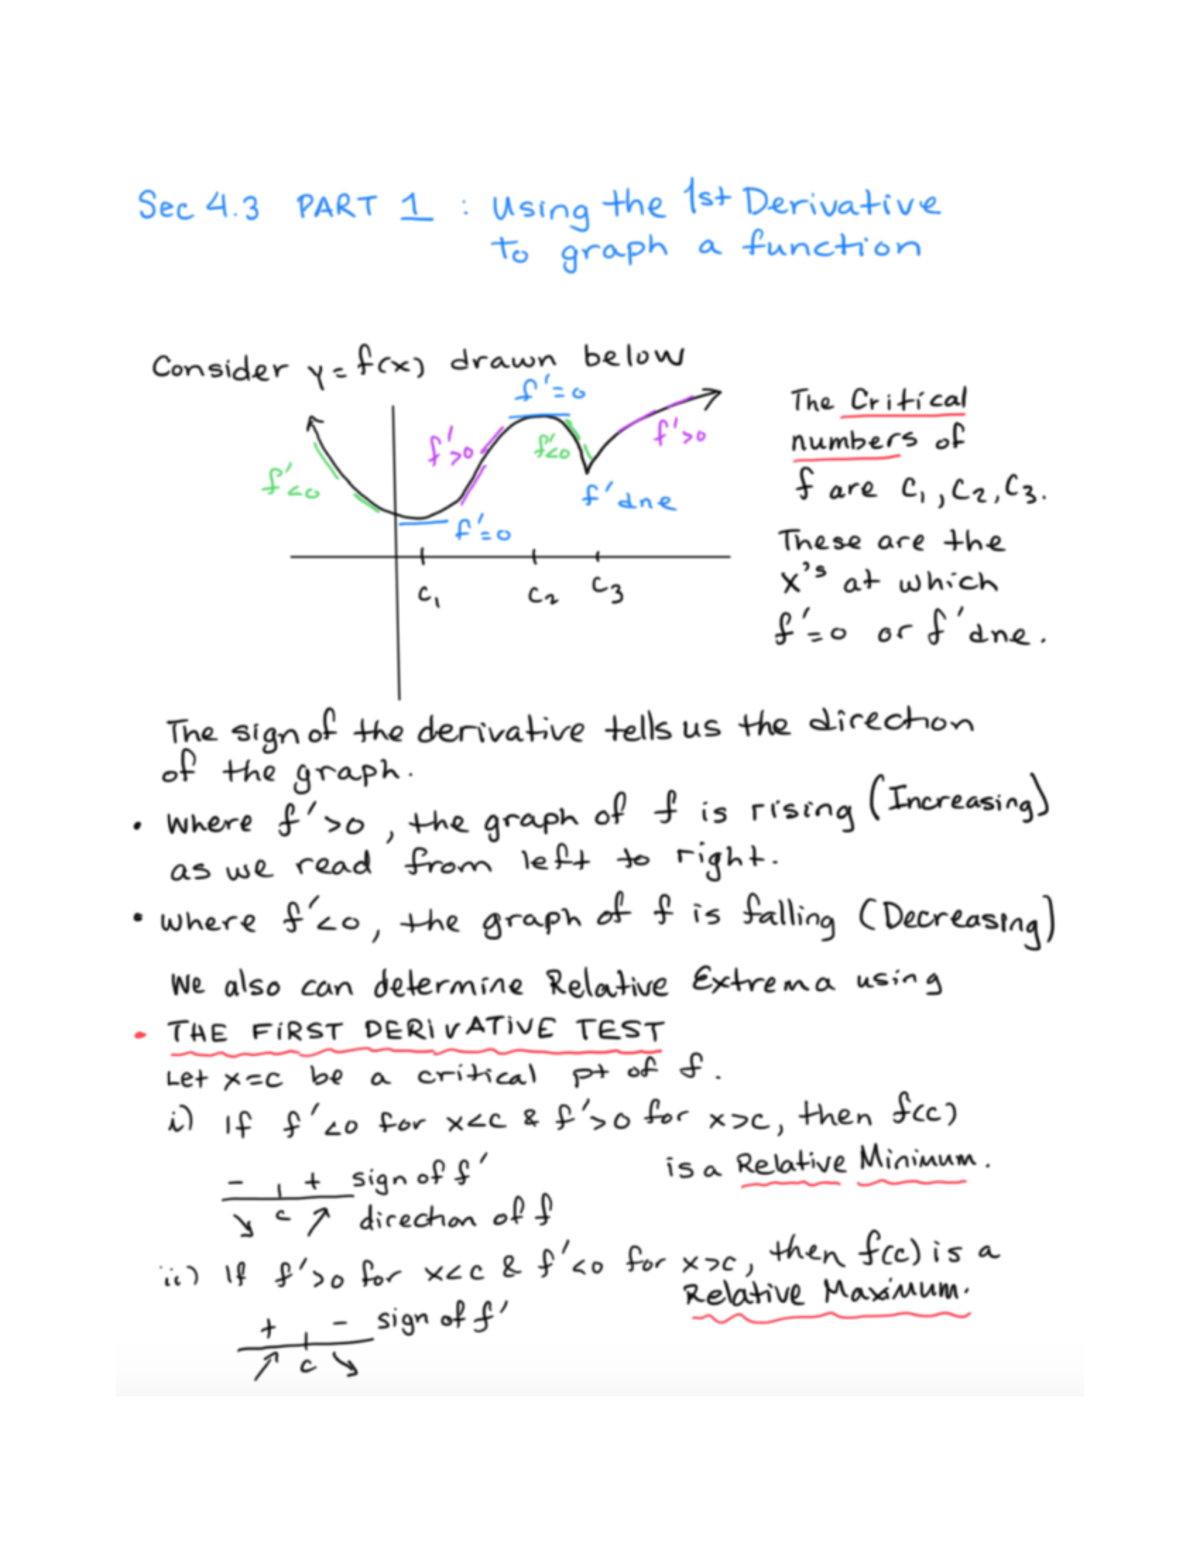 Sec 4.3 PART 1 : Using the 1st Derivative
to graph a function
Consider y = f(x) drawn below
f'=0
f'>0
f'<0
f'>0
f'<0
f' dne
f'=0
c₁
c₂
c₃
The Critical
numbers of
f are c₁, c₂, c₃.
These are the
x's at which
f'=0 or f' dne.
The sign of the derivative tells us the direction
of the graph.
• where f'>0, the graph of f is rising (Increasing)
as we read from left to right.
• where f'<0, the graph of f is falling (Decreasing)
We also can determine Relative Extrema using
• THE FIRST DERIVATIVE TEST
Let x=c be a critical pt of f.
i) If f'<0 for x<c & f'>0 for x>c, then f(c)
is a Relative Minimum.
- + sign of f'
↘ c ↗ direction of f
ii) If f'>0 for x<c & f'<0 for x>c, then f(c) is a
Relative Maximum.
+ - sign of f'
↗ c ↘